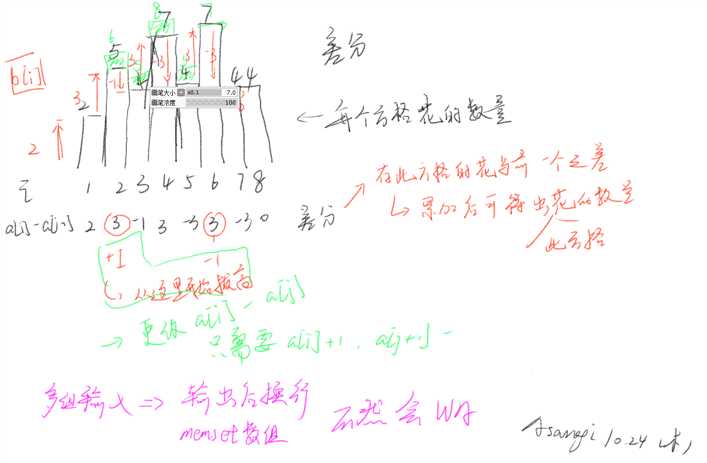 差分
b[i]
6
5
8
7
7
4
4 4
3
2
2
画笔大小 x0.1 7.0
画笔浓度 100
← 每个方格花的数量
i 1 2 3 4 5 6 7 8
a[i]-a[i-1] 2 3 -1 3 -3 3 -3 0 差分
在此方格的花与前一个之差
↳ 累加后可得出花的数量
此方格
+1 -1
从这里开始拔高
→ 更做 a[i] - a[j]
只需要 a[i]+1, a[j+1]-
多组输入 => 输出后换行
memset数组
不然会WA
Asangi 10.24